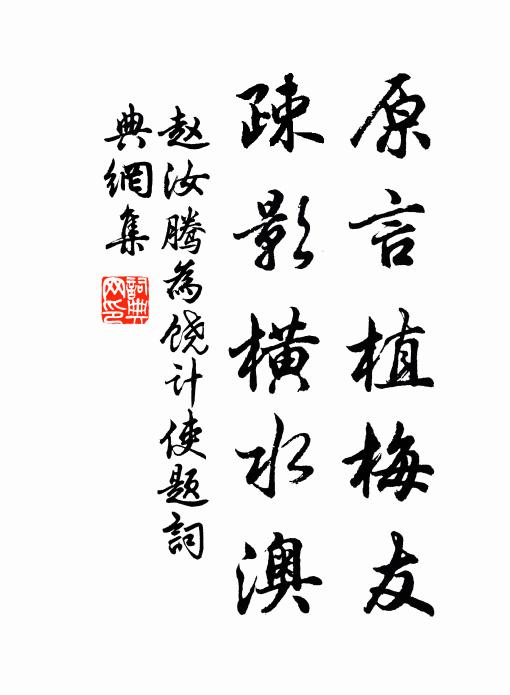 原言植梅友
疎影橫水澳
赵汝腾為饶计使题詞
典網集
詞典網印